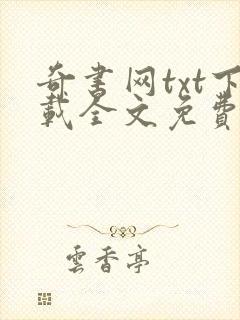 奇書网txt下
載全文免費
雲香亭